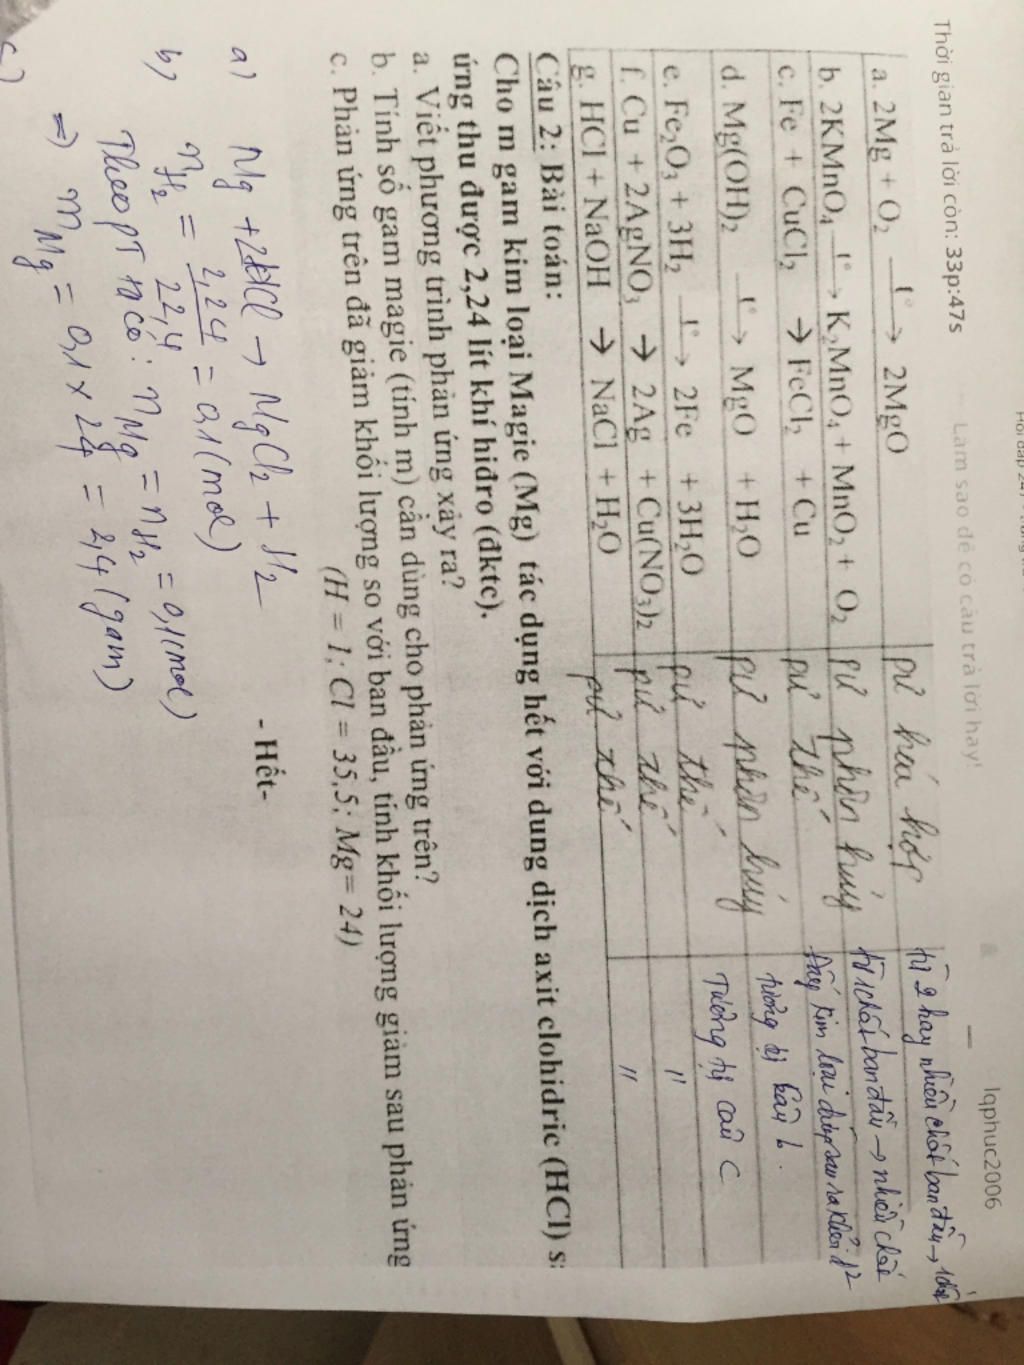 Hỏi đáp 247
lqphuc2006
Thời gian trả lời còn: 33p:47s
Làm sao để có câu trả lời hay?
a. 2Mg + O₂ —t°→ 2MgO pứ hoá hợp từ 2 hay nhiều chất ban đầu → 1 chất
b. 2KMnO₄ —t°→ K₂MnO₄ + MnO₂ + O₂ pứ phân hủy từ 1 chất ban đầu → nhiều chất
c. Fe + CuCl₂ → FeCl₂ + Cu pứ thế đẩy kim loại đứng sau ra khỏi d²
d. Mg(OH)₂ —t°→ MgO + H₂O pứ phân hủy tương tự câu b.
e. Fe₂O₃ + 3H₂ —t°→ 2Fe + 3H₂O pứ thế Tương tự câu C
f. Cu + 2AgNO₃ → 2Ag + Cu(NO₃)₂ pứ thế "
g. HCl + NaOH → NaCl + H₂O pứ thế "
Câu 2: Bài toán:
Cho m gam kim loại Magie (Mg) tác dụng hết với dung dịch axit clohidric (HCl)
ứng thu được 2,24 lít khí hiđro (đktc).
a. Viết phương trình phản ứng xảy ra?
b. Tính số gam magie (tính m) cần dùng cho phản ứng trên?
c. Phản ứng trên đã giảm khối lượng so với ban đầu, tính khối lượng giảm sau phản ứng
(H = 1; Cl = 35,5; Mg= 24)
- Hết-
a) Mg + 2HCl → MgCl₂ + H₂
b) nH₂ = 2,24/22,4 = 0,1 (mol)
Theo PT ta có: nMg = nH₂ = 0,1 (mol)
⇒ mMg = 0,1 x 24 = 2,4 (gam)
c)